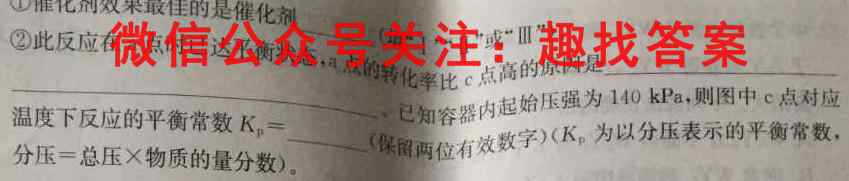 ①催化剂效果最佳的是催化剂
或“Ⅲ”
②此反应在
微信公众号关注：趣找答案
点的转化率比c点高的原因是
。已知容器内起始压强为140 kPa,则图中c点对应
温度下反应的平衡常数Kp=
(保留两位有效数字)(Kp为以分压表示的平衡常数,
分压=总压×物质的量分数)。